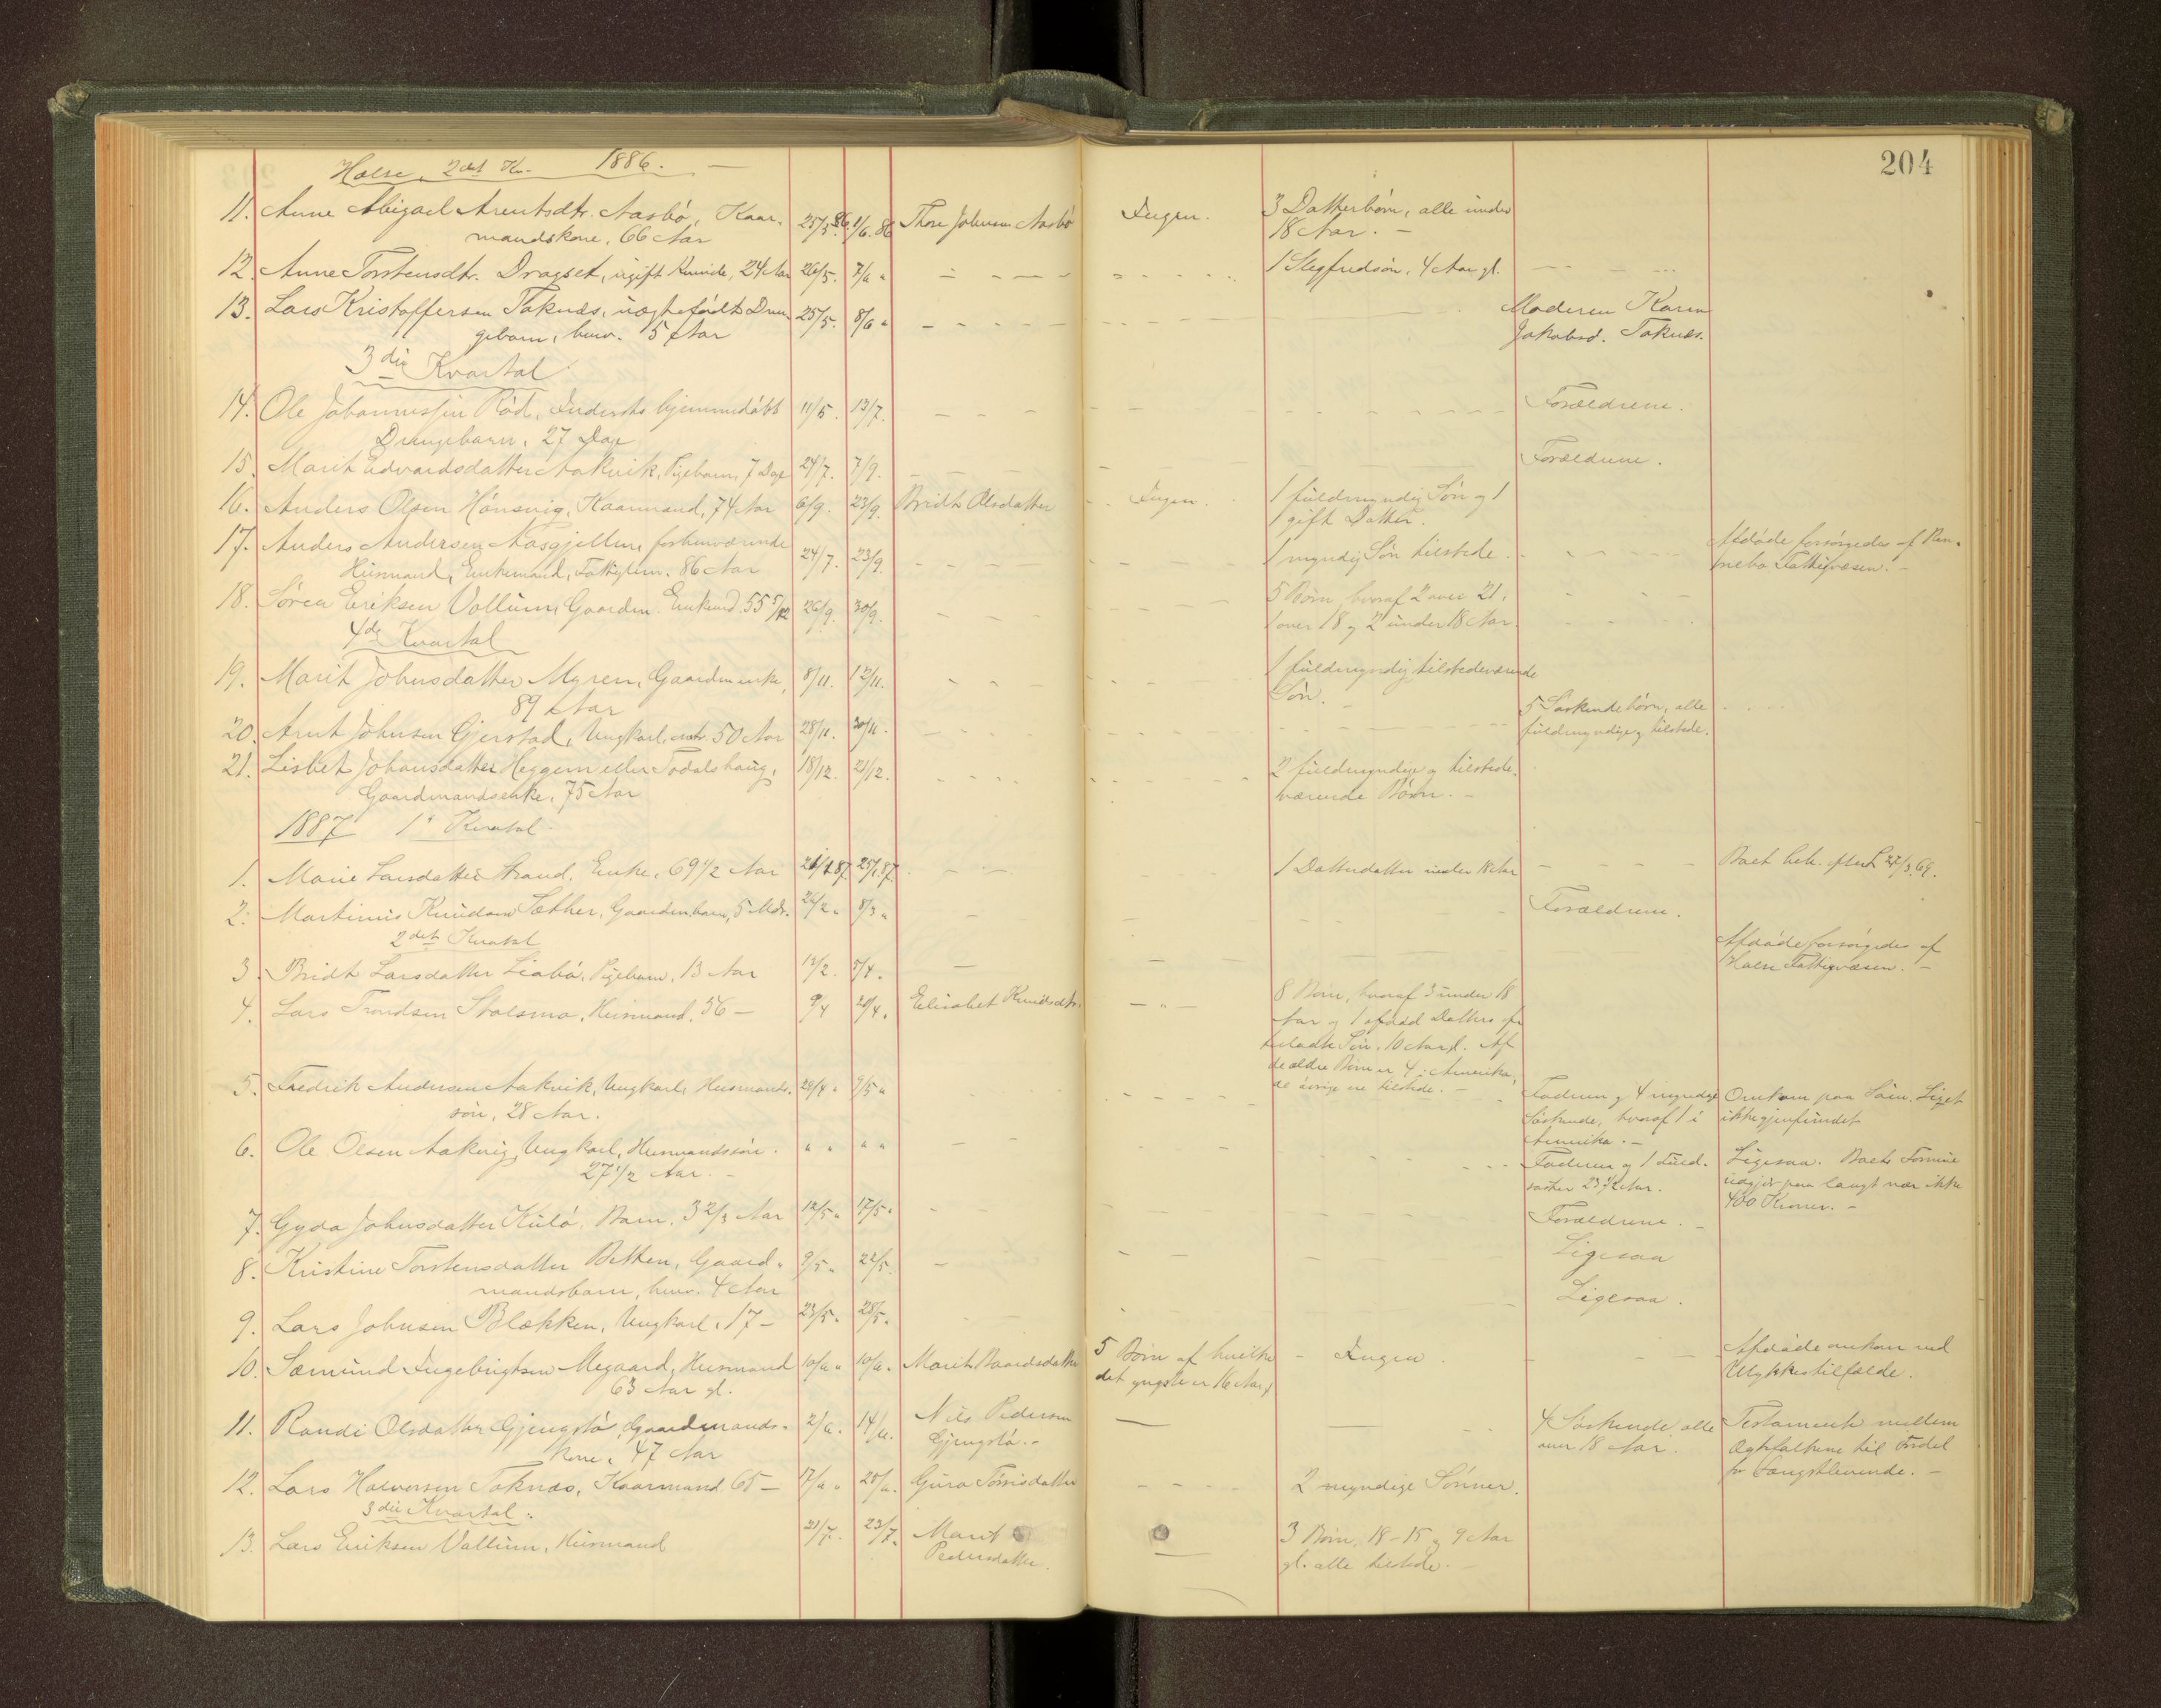 204
Halse, 2det Kv. 1886. —
11. Anne Abigael Arentsdtr. Aasbø, Kaar- 25/5 86. 1/6. 86 Thore Johnsen Aasbø Ingen. 3 Datterbørn, alle under
mandskone, 66 Aar 18 Aar. —
12. Anne Torstensdtr. Dragset, ugift Kvinde, 24 Aar 26/5. 7/6 " 1 Slegfredsøn, 4 Aar gl.
13. Lars Kristoffersen Taknæs, uægtefødt Dren- 25/5. 8/6 " Moderen Karen
gebarn, henv. 5 Aar Jakobsd. Taknæs.
3die Kvartal
14. Ole Johannessen Rød, Indersts hjemmedøbt 11/5. 13/7. Forældrene.
Drengebarn, 27 Dage
15. Marit Edvardsdatter Aakvik, Pigebarn, 7 Dage 24/7. 7/9. Forældrene.
16. Anders Olsen Hønsvig, Kaarmand, 74 Aar 6/9. 23/9. Bridt Olsdatter Ingen. 1 fuldmyndig Søn og 1
gift Datter.
17. Anders Andersen Aasgjellen, forhenværende 24/7. 23/9. 1 myndig Søn tilstede. Afdøde forsørgedes af Rin-
Husmand, Enkemand, Fattiglem. 86 Aar nebo Fattigvæsen. —
18. Søren Eriksen Vullum, Gaardm. Enkemd. 55 5/12 26/9. 30/9. 5 Børn, hvoraf 2 over 21,
1 over 18 og 2 under 18 Aar.
4de Kvartal
19. Marit Johnsdatter Myren, Gaardm.enke, 8/11. 12/11. 1 fuldmyndig tilstedeværende
89 Aar Søn. —
20. Arnt Johnsen Gjerstad, Ungkarl, 50 Aar 28/11. 30/11. 5 Søskendebørn, alle
fuldmyndige og tilstede.
21. Lisbet Johansdatter Heggem eller Todalshaug, 18/12. 21/12. 2 fuldmyndige og tilstede-
Gaardmandsenke, 75 Aar værende Børn. —
1887 1ste Kvartal
1. Marie Larsdatter Strand, Enke, 69 1/2 Aar 87. 25/1 87. 1 Datterdatter under 18 Aar Boet beh. efter L 27/3. 69.
2. Martinus Knudsen Sæther, Gaardm.barn, 5 Mdr. 26/2 " 8/3 " Forældrene.
2det Kvartal
3. Bridt Larsdatter Liabø, Pigebarn, 13 Aar 13/2. 5/4. Afdøde forsørgedes af
Halse Fattigvæsen. —
4. Lars Trondsen Stolsmo, Husmand, 56 — 9/4 20/4. Elisabet Knudsdtr. — " — 8 Børn, hvoraf 3 under 18
Aar og 1 afdød Datters efter-
ladte Søn, 10 Aar gl. Af
de ældre Børn er 4 i Amerika,
de øvrige ere tilstede. —
5. Fredrik Andersen Aakvik, Ungkarl, Husmands- 25/4 " 9/5 " Faderen og 4 myndige Omkom paa Søen. Liget
søn, 28 Aar. Søskende, hvoraf 1 i ikke gjenfundet
Amerika. —
6. Ole Olsen Aakvig, Ungkarl, Husmandssøn. " " " " Faderen og 1 Fuld- Ligesaa. Boets Formue
27 1/2 Aar. — søster 23 1/2 Aar. udgjør paa langt nær ikke
400 Kroner. —
7. Gyda Johnsdatter Kulø, Barn, 3 2/3 Aar 12/5 " 17/5 " Forældrene. —
8. Kristine Torstensdatter Betten, Gaard- 9/5 " 22/5. Ligesaa
mandsbarn, henv. 4 Aar
9. Lars Johnsen Blækken, Ungkarl, 17 — 23/5. 28/5. Ligesaa.
10. Sæmund Ingebrigtsen Megaard, Husmand 10/6 " 10/6. Marit Baardsdatter 5 Børn af hvilke Ingen. Afdøde omkom ved
63 Aar gl. det yngste er 16 Aar gl. Ulykkestilfælde.
11. Randi Olsdatter Gjengstø, Gaardmands- 2/6. 14/6. Nils Pedersen — 4 Søskende, alle Testamente mellem
kone, 47 Aar Gjengstø. — over 18 Aar. Ægtefolkene til Fordel
for Længstlevende. —
12. Lars Halvorsen Taknæs, Kaarmand, 65 — 17/6 " 20/6. Guro Tørrisdatter 2 myndige Sønner.
3die Kvartal.
13. Lars Eriksen Vullum, Husmand 21/7. 23/7. Marit 3 Børn, 18 - 15 og 9 Aar
Pedersdatter. gl. alle tilstede. —